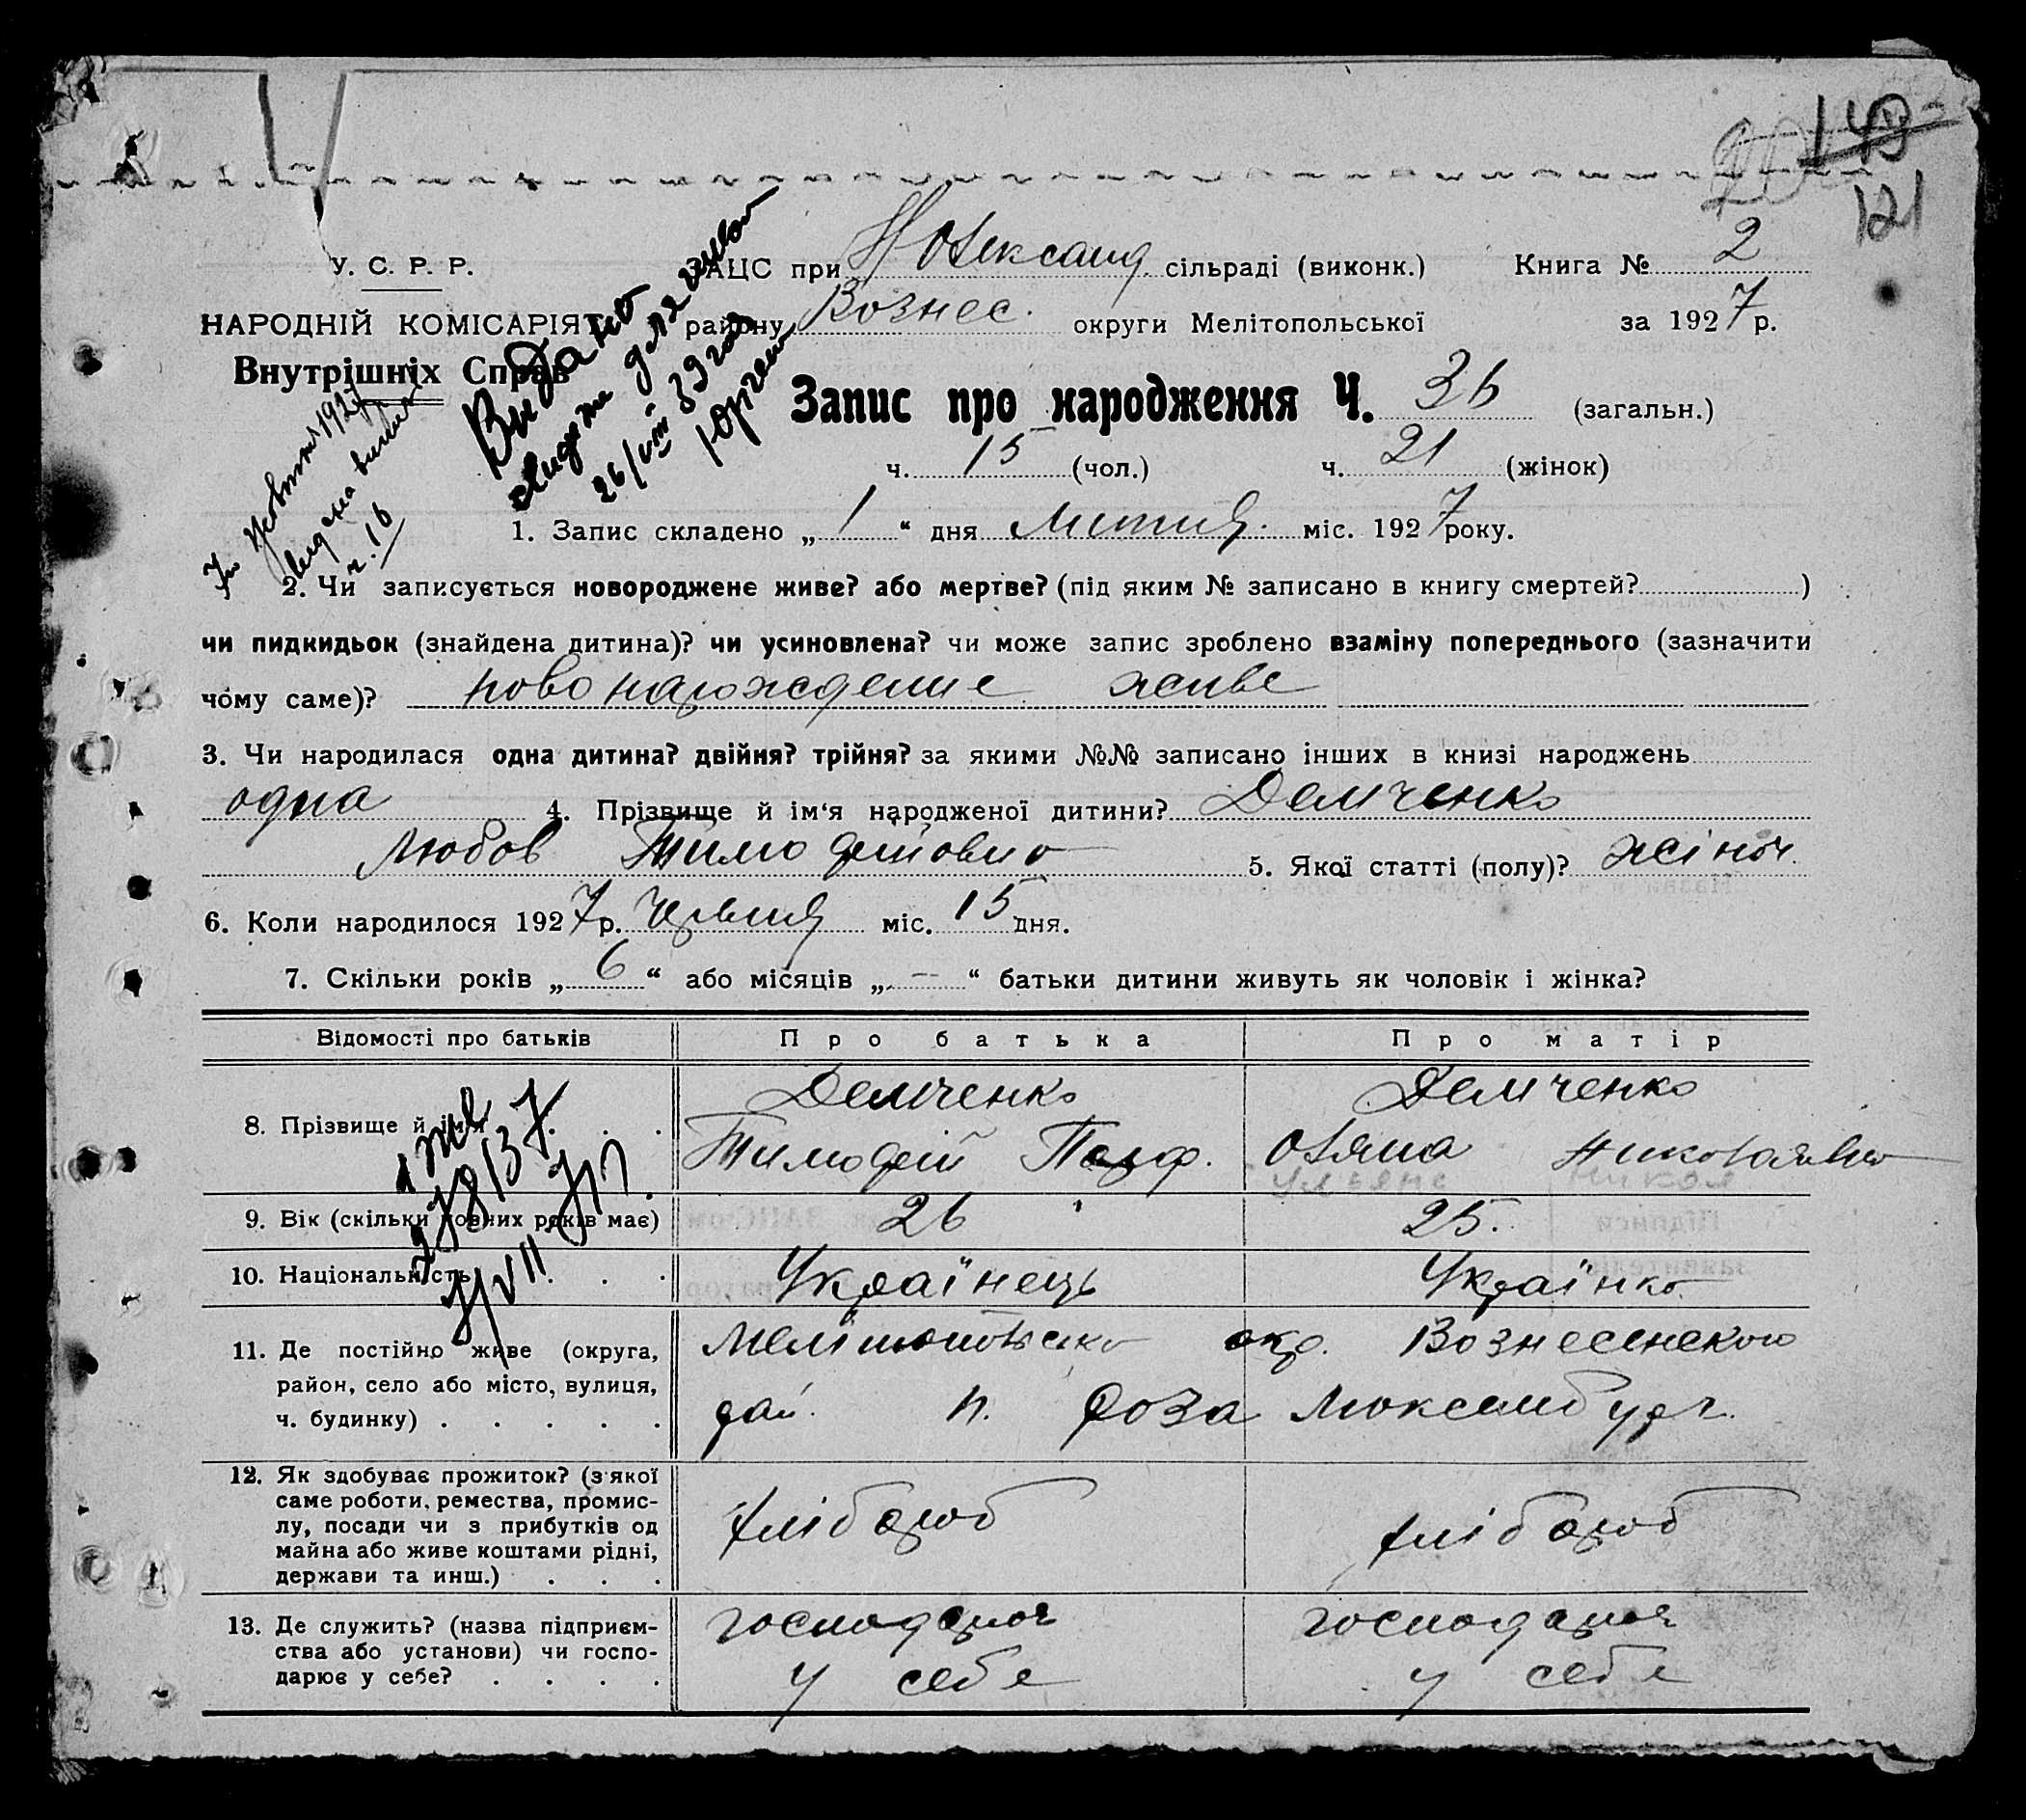 121
У. С. Р. Р.
ЗАЦС при Н Олександ. сільраді (виконк.) Книга № 2
НАРОДНІЙ КОМІСАРІЯТ району Вознес. округи Мелітопольської за 1927 р.
Внутрішніх Справ
Видано
26/VIII 39 год
ч. 16
Запис про народження Ч. 36 (загальн.)
ч. 15 (чол.) ч. 21 (жінок)
1. Запис складено „ 1 “ дня Липня міс. 1927 року.
2. Чи записується новороджене живе? або мертве? (під яким № записано в книгу смертей? )
чи пидкидьок (знайдена дитина)? чи усиновлена? чи може запис зроблено взаміну попереднього (зазначити
чому саме)? живе
3. Чи народилася одна дитина? двійня? трійня? за якими №№ записано інших в книзі народжень
одна 4. Прізвище й ім‘я народженої дитини? Демченко
Любов Тимофеївна 5. Якої статті (полу)? жіноч.
6. Коли народилося 1927 р. Червня міс. 15 дня.
7. Скільки років „ 6 “ або місяців „ — “ батьки дитини живуть як чоловік і жінка?
Відомості про батьків Про батька Про матір
8. Прізвище й ім'я . . . Демченко Демченко
Тимофей Парф. Оляна Николаявна
Ульяна Никол
9. Вік (скільки повних років має) 26 25.
10. Національність . . . Українець Українка
11. Де постійно живе (округа, район, село або місто, вулиця, ч. будинку) . . . . . Мелітопольська окр. Вознесенского
рай. п. Роза Люксембург.
12. Як здобуває прожиток? (з якої саме роботи, ремества, промислу, посади чи з прибутків од майна або живе коштами рідні, держави та инш.) . . . хлібороб хлібороб
13. Де служить? (назва підприємства або установи) чи господарює у себе? . . . . господарює господарює
у себе у себе